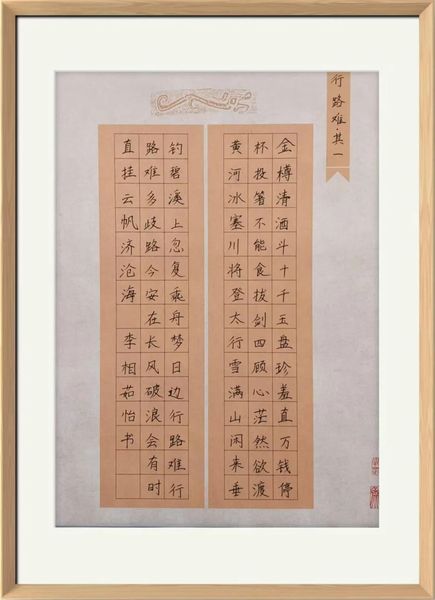 行路难·其一
金樽清酒斗十千玉盘珍羞直万钱停
杯投箸不能食拔剑四顾心茫然欲渡
黄河冰塞川将登太行雪满山闲来垂
钓碧溪上忽复乘舟梦日边行路难行
路难多歧路今安在长风破浪会有时
直挂云帆济沧海 李相茹怡书